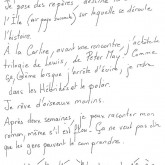 Je pose des repères, dessine
l'Île (un pays inventé) sur laquelle se déroule
l'histoire.
À la Carline, avant une rencontre, j'achète la
trilogie de Lewis, de Peter May. Comme
ça, même lorsque j'arrête d'écrire, je reste
dans les Hébrides et le polar.
Je rêve d'oiseaux marins.
Après deux semaines, je peux raconter mon
roman, même s'il est flou. Ça ne veut pas dire
que les gens peuvent le comprendre.